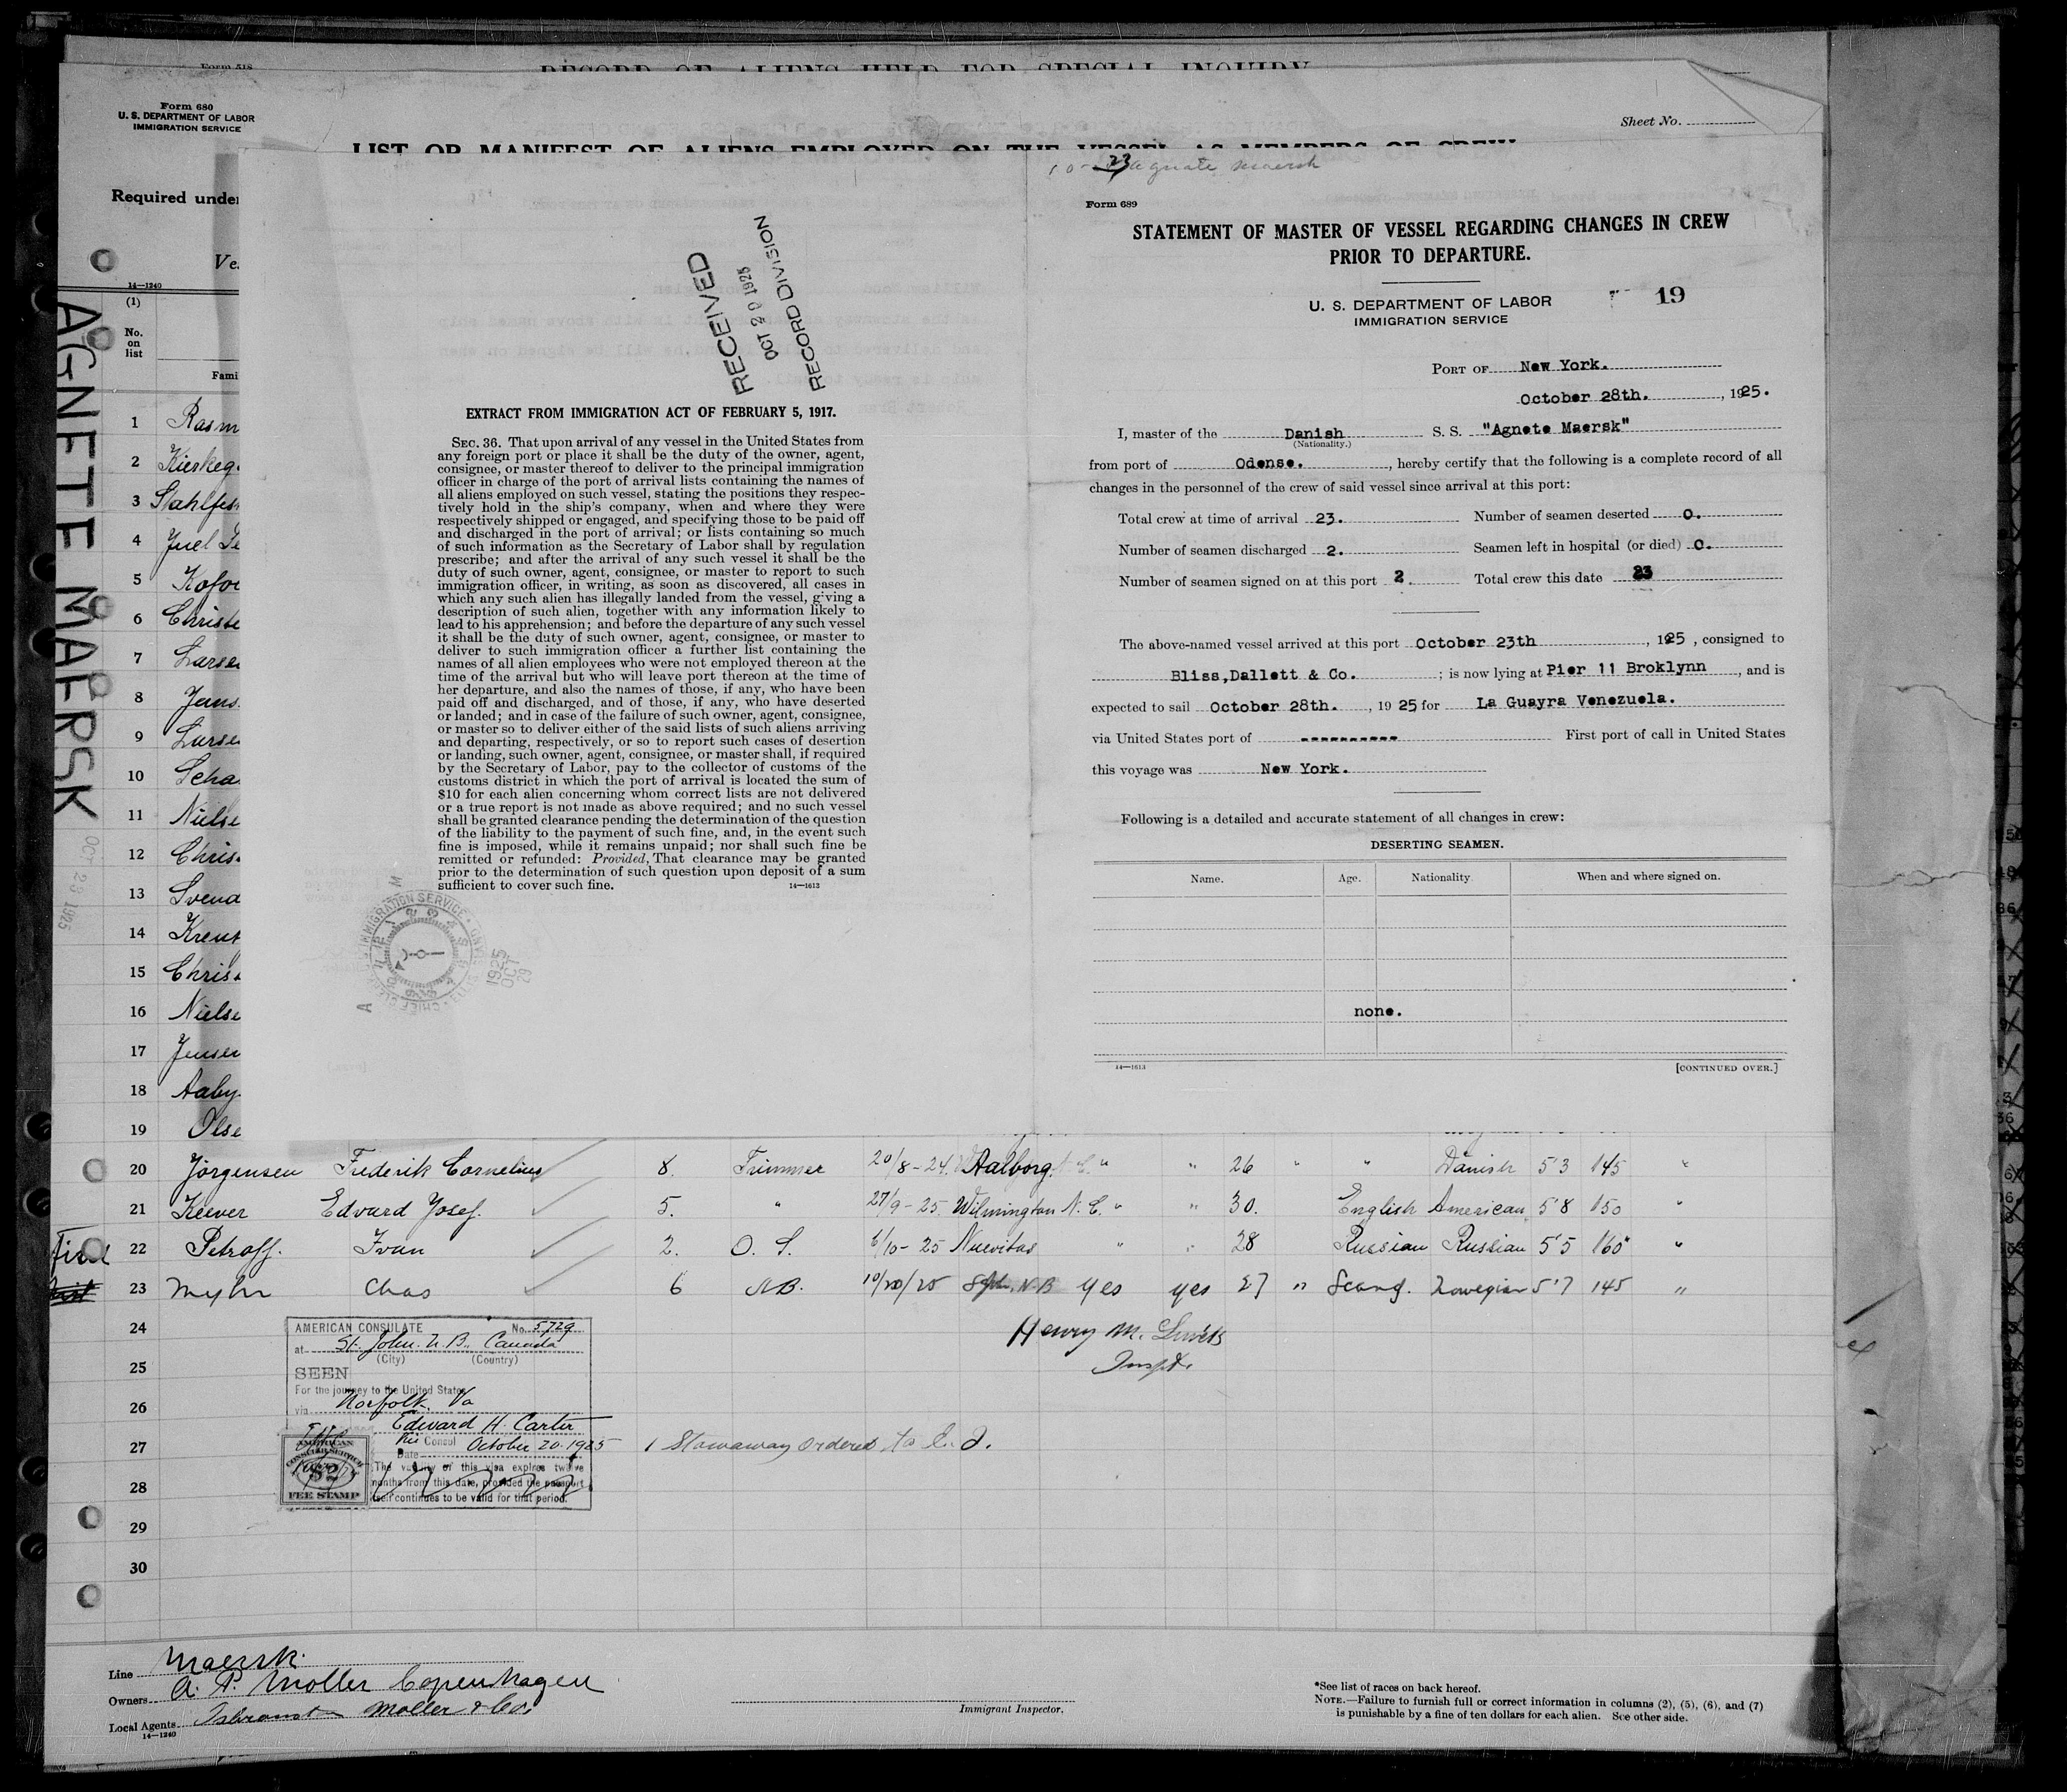 Form 518
RECORD OF ALIENS HELD FOR SPECIAL INQUIRY
Form 680
U. S. DEPARTMENT OF LABOR
IMMIGRATION SERVICE
Sheet No.
LIST OR MANIFEST OF ALIENS EMPLOYED ON THE VESSEL AS MEMBERS OF CREW
Required unde
Ve
14—1240
(1)
No.
on
list
Fami
AGNETE MAERSK
OCT 23 1925
1 Rasm
2 Kierkeg
3 Stahlfes
4 Juel
5 Kofoe
6 Christe
7 Larse
8 Jens
9 Larse
10 Scha
11 Nielse
12 Chris
13 Svend
14 Kreus
15 Chris
16 Nielse
17 Jensen
18 Aaby
19 Olse
RECEIVED
OCT 29 1925
RECORD DIVISION
EXTRACT FROM IMMIGRATION ACT OF FEBRUARY 5, 1917.
SEC. 36. That upon arrival of any vessel in the United States from
any foreign port or place it shall be the duty of the owner, agent,
consignee, or master thereof to deliver to the principal immigration
officer in charge of the port of arrival lists containing the names of
all aliens employed on such vessel, stating the positions they respec-
tively hold in the ship's company, when and where they were
respectively shipped or engaged, and specifying those to be paid off
and discharged in the port of arrival; or lists containing so much
of such information as the Secretary of Labor shall by regulation
prescribe; and after the arrival of any such vessel it shall be the
duty of such owner, agent, consignee, or master to report to such
immigration officer, in writing, as soon as discovered, all cases in
which any such alien has illegally landed from the vessel, giving a
description of such alien, together with any information likely to
lead to his apprehension; and before the departure of any such vessel
it shall be the duty of such owner, agent, consignee, or master to
deliver to such immigration officer a further list containing the
names of all alien employees who were not employed thereon at the
time of the arrival but who will leave port thereon at the time of
her departure, and also the names of those, if any, who have been
paid off and discharged, and of those, if any, who have deserted
or landed; and in case of the failure of such owner, agent, consignee,
or master so to deliver either of the said lists of such aliens arriving
and departing, respectively, or so to report such cases of desertion
or landing, such owner, agent, consignee, or master shall, if required
by the Secretary of Labor, pay to the collector of customs of the
customs district in which the port of arrival is located the sum of
$10 for each alien concerning whom correct lists are not delivered
or a true report is not made as above required; and no such vessel
shall be granted clearance pending the determination of the question
of the liability to the payment of such fine, and, in the event such
fine is imposed, while it remains unpaid; nor shall such fine be
remitted or refunded: Provided, That clearance may be granted
prior to the determination of such question upon deposit of a sum
sufficient to cover such fine.
14—1613
IMMIGRATION SERVICE
1925
OCT
29
10-23 Agnate Maersk
Form 689
STATEMENT OF MASTER OF VESSEL REGARDING CHANGES IN CREW
PRIOR TO DEPARTURE.
U. S. DEPARTMENT OF LABOR
IMMIGRATION SERVICE
19
PORT OF New York.
October 28th. , 1925.
I, master of the Danish S. S. "Agnete Maersk"
(Nationality.)
from port of Odense. , hereby certify that the following is a complete record of all
changes in the personnel of the crew of said vessel since arrival at this port:
Total crew at time of arrival 23. Number of seamen deserted 0.
Number of seamen discharged 2. Seamen left in hospital (or died) 0.
Number of seamen signed on at this port 2. Total crew this date 23
The above-named vessel arrived at this port October 23th , 1925 , consigned to
Bliss,Dallett & Co. ; is now lying at Pier 11 Broklynn , and is
expected to sail October 28th. , 1925 for La Guayra Venezuela.
via United States port of ---------- First port of call in United States
this voyage was New York.
Following is a detailed and accurate statement of all changes in crew:
DESERTING SEAMEN.
Name. Age. Nationality When and where signed on.
none.
14—1613
[CONTINUED OVER.]
20 Jörgensen Frederik Cornelius 8. Trimmer 20/8-24. Aalborg. " " 26 " " Danish 5'3 145 "
21 Keever Edvard Josef. 5. " 27/9-25 Wilmington N.C. " " 30. English American 5'8 150 "
22 Petroff. Ivan 2. O. S. 6/10-25 Nuevitas " " 28 Russian Russian 5'5 160 "
23 Myhr Chas 6 AB. 10/20/25 N.B yes yes 27 " Scand. Norwegian 5'7 145 "
24 Henry M.
25 Inspt.
26
27 1 Stowaway ordered to
28
29
30
AMERICAN CONSULATE No. 5729
at St. John. N.B., Canada
(City) (Country)
SEEN
For the journey to the United States
via Norfolk Va
Edward H. Carter
Vice Consul October 20. 1925
Date
The validity of this visa expires twelve
months from this date, provided the passport
itself continues to be valid for that period.
AMERICAN
CONSULAR SERVICE
$2
FEE STAMP
Line Maersk.
Owners A. P. Moller Copenhagen
Local Agents Moller & Co.
14—1240
Immigrant Inspector.
*See list of races on back hereof.
NOTE.—Failure to furnish full or correct information in columns (2), (5), (6), and (7)
is punishable by a fine of ten dollars for each alien. See other side.